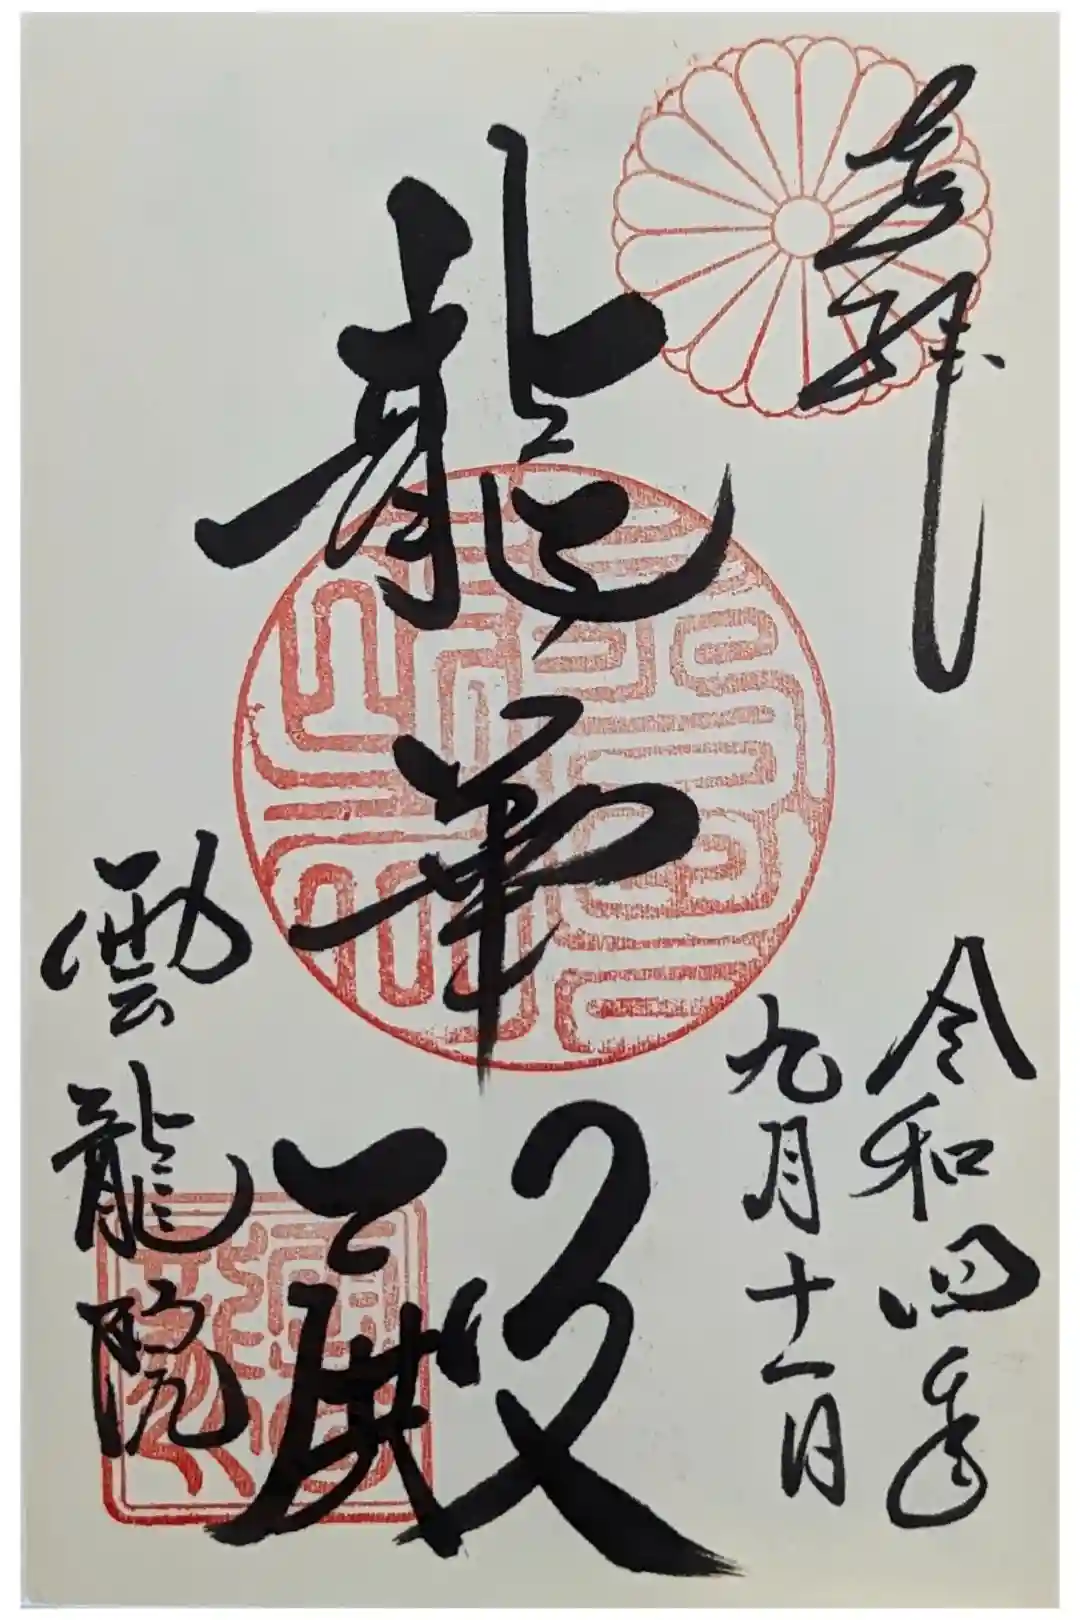 奉拝
令和四年
九月十一日
龍華殿
雲龍院